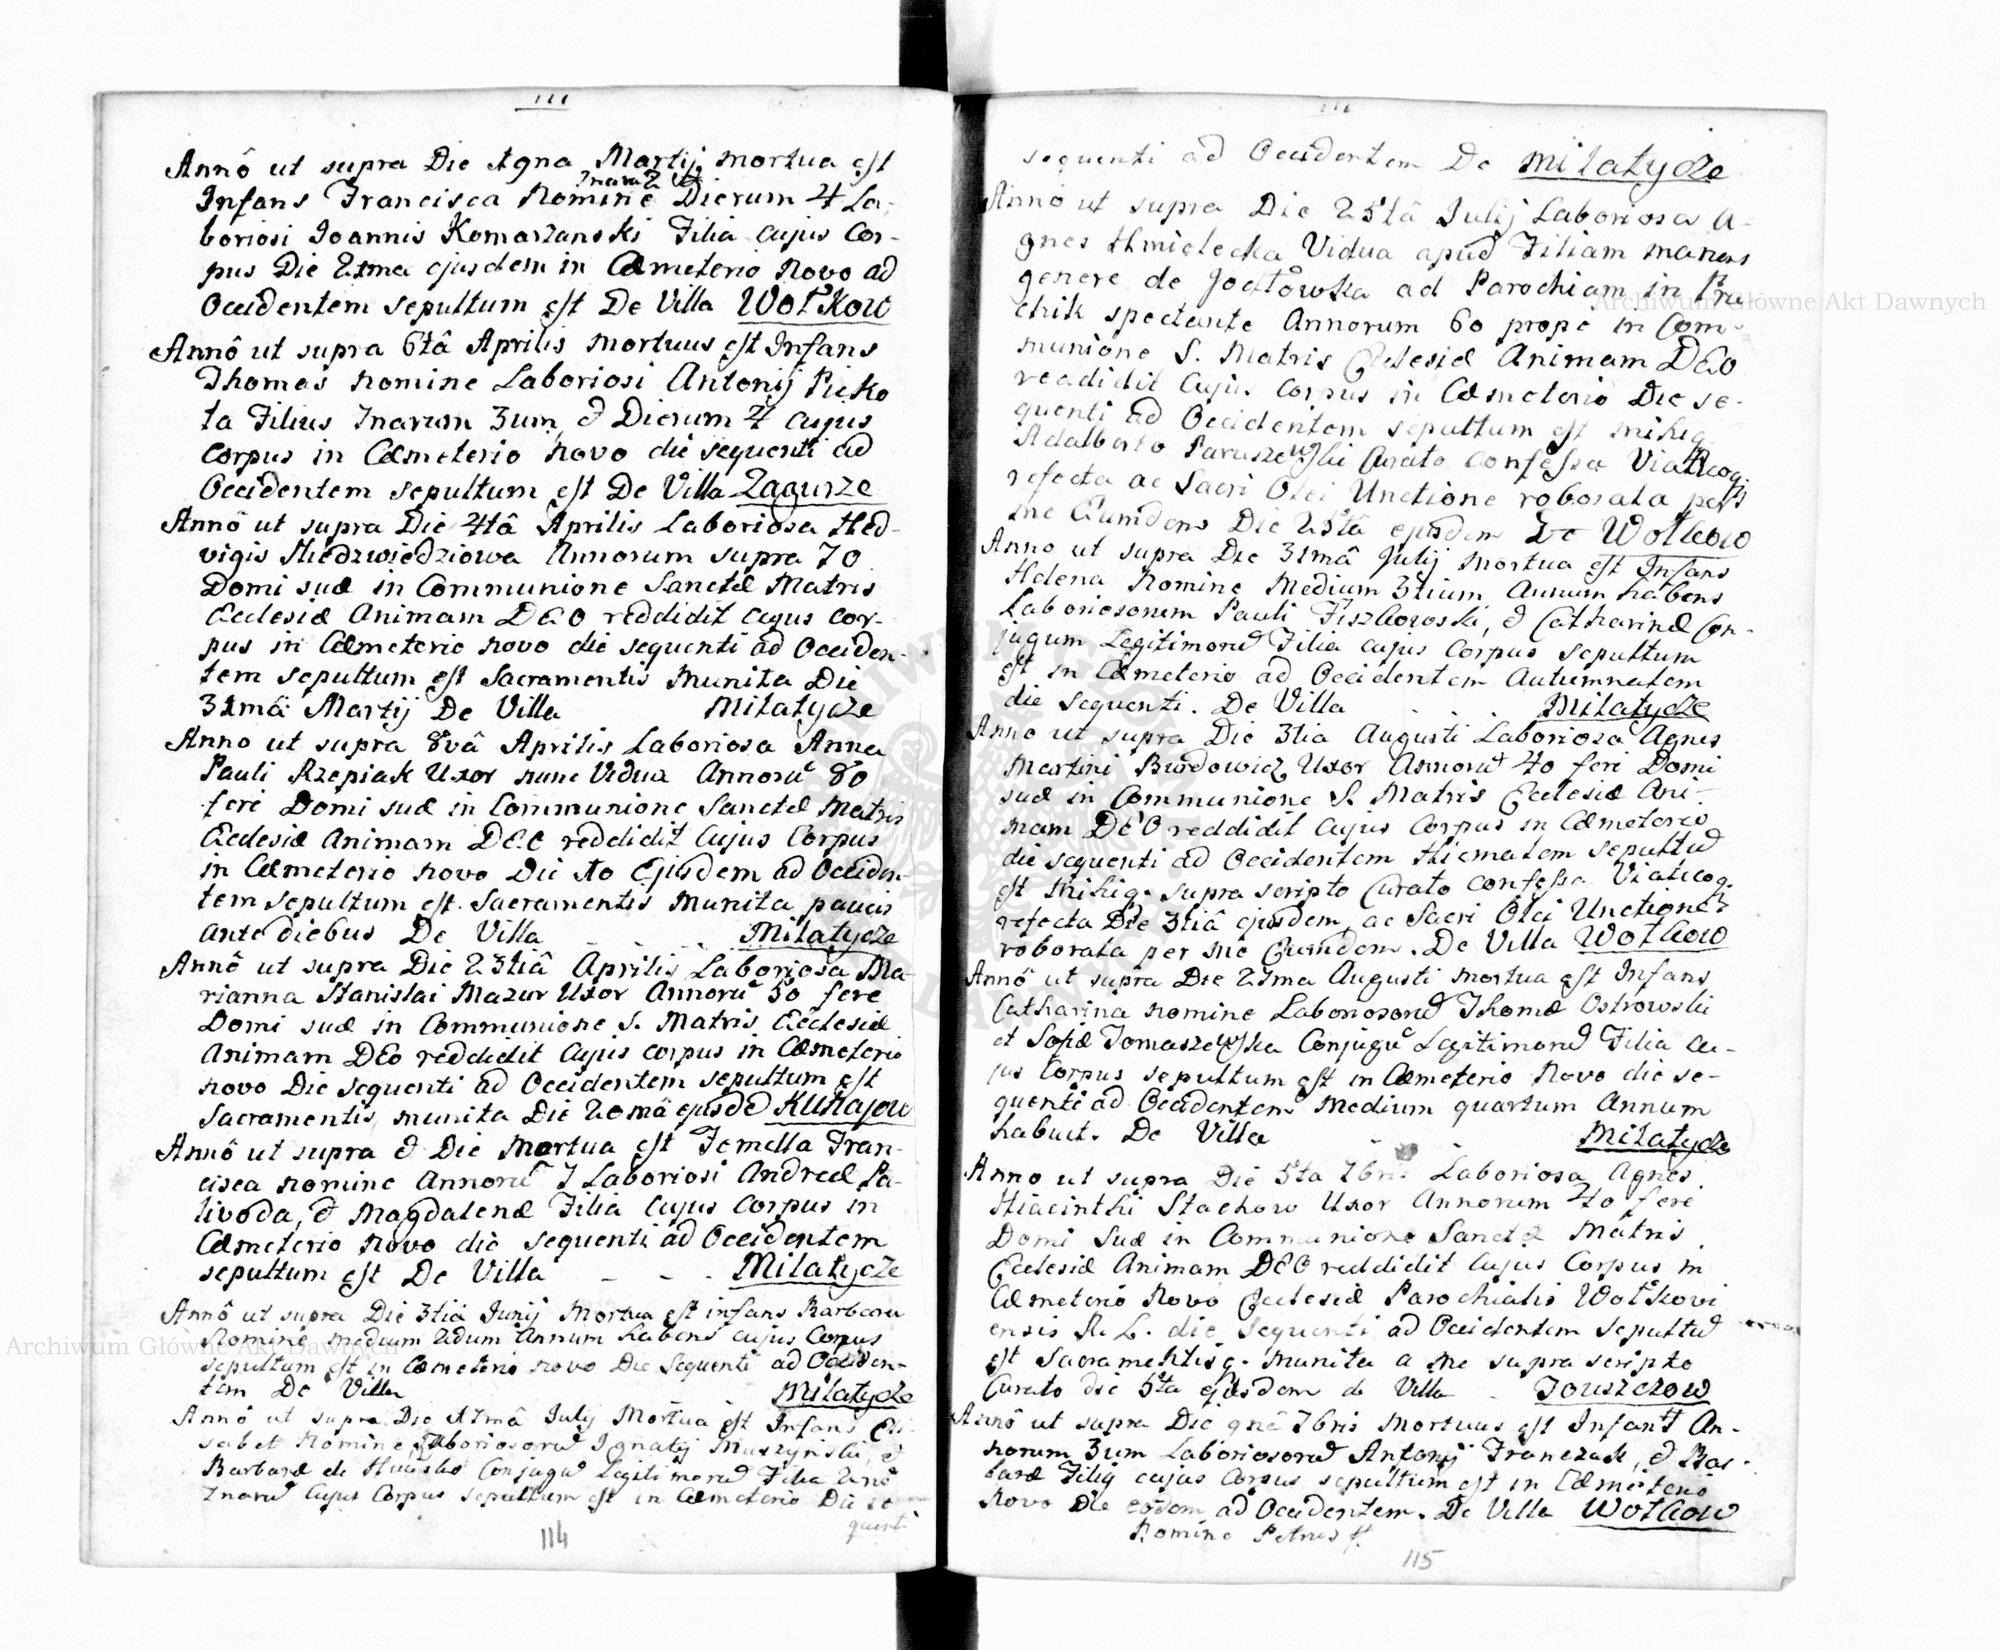 Annô ut supra Die 19na Martij mortua est
7naru 2 et
Infans Francisca Nomine Dierum 4 La-
boriosi Joannis Komarzanski Filia cujus Cor-
pus Die 21ma ejusdem in Cæmeterio Novo ad
Occidentem sepultum est De Villa Wołkow
Annô ut supra 6tâ Aprilis mortuus est Infans
Thomas nomine Laboriosi Antonij Pieko
ta Filius 7narum 3um, & Dierum 4 cujus
Corpus in Cæmeterio novo die sequenti ad
Occidentem sepultum est De Villa Zagurze
Annô ut supra Die 4tâ Aprilis Laboriosa Hed-
vigis Niedzwiedziowa Annorum supra 70
Domi suæ in Communione Sanctæ Matris
Ecclesiæ Animam DEO reddidit cujus cor-
pus in Cæmeterio novo die sequenti ad Occiden-
tem sepultum est Sacramentis munita Die
31mâ Martij De Villa Milatycze
Anno ut supra 8vâ Aprilis Laboriosa Anna
Pauli Rzepiak Uxor nunc Vidua Annorū 80
fere Domi suæ in Communione Sanctæ Matris
Ecclesiæ Animam DEO reddidit Cujus Corpus
in Cæmeterio novo Die 10 Ejusdem ad Occiden-
tem sepultum est. Sacramentis munita paucis
ante diebus De Villa - - - Milatycze
Annô ut supra Die 23tiâ Aprilis Laboriosa Ma-
rianna Stanislai Mazur Uxor Annorū 50 fere
Domi suæ in Communione S. Matris Ecclesiæ
Animam DEO reddidit Cujus corpus in Cæmeterio
novo Die sequenti ad Occidentem sepultum est
Sacramentis munita Die 20mâ ejusdē Kuhajow
Annô ut supra & Die Mortua est Femella Fran-
cisca nomine Annorū 7 Laboriosi Andreæ Pa-
livoda, & Magdalenæ Filia Cujus Corpus in
Cæmeterio Novo die sequenti ad Occidentem
sepultum est De Villa - - - Milatycze
Annô ut supra Die 3tiâ Junij Mortua est infans Barbara
Nomine medium 2dum Annum habens cujus Corpus
sepultum est in Cæmeterio novo Die Sequenti ad Occiden-
tem De Villa Milatycze
Annô ut supra Die 17mâ Julij Mortua est Infans Eli-
sabet Nomine Laboriosorū Ignatij Muszynski, &
Barbaræ de Conjugū Legitimorū Filia
7narū Cujus Corpus sepultum est in Cæmeterio Die se
quenti
114
sequenti ad Occidentem De Milatycze
Annô ut supra Die 25tâ Julij Laboriosa A-
gnes Hmielecka Vidua apud Filiam manens
genere de Jodłowska ad Parochiam in Pru
chik spectante Annorum 60 prope in Com-
munione S. Matris Ecclesiæ Animam DEO
reddidit Cujus Corpus in Cæmeterio Die se-
quenti ad Occidentem sepultum est mihiq.
Adalberto Paruszewski Curato confessa Viaticoq.
refecta ac Sacri Olei Unctione roborata per
me Eumdem Die 25tâ ejusdem De Wolkow
Anno ut supra Die 31mâ Julij mortua est Infans
Helena Nomine Medium 3tium Annum habens
Laboriosorum Pauli Fiszkowski, & Catharinæ Con-
jugum Legitimorū Filia cujus Corpus sepultum
est in Cæmeterio ad Occidentem Autumnalem
die sequenti. De Villa - - - Milatycze
Anno ut supra Die 3tia Augusti Laboriosa Agnes
Martini Burdowicz Uxor Annorū 40 fere Domi
suæ in Communione S. Matris Ecclesiæ Ani-
mam DEO reddidit Cujus Corpus in Cæmeterio
die sequenti ad Occidentem Hiemalem sepultū
est mihiq. supra scripto Curato confessa Viaticoq.
refecta Die 3tiâ ejusdem ac Sacri Olei Unctione
roborata per me Eumdem. De Villa Wołkow
Annô ut supra Die 27ma Augusti mortua est Infans
Catharina nomine Laboriosorū Thomæ Ostrowski
et Sofiæ Tomaszewska Conjugū Legitimorū Filia cu-
jus Corpus sepultum est in Cæmeterio Novo die se-
quenti ad Occidentem Medium quartum Annum
habuit. De Villa - - Milatycze
Anno ut supra Die 5ta 7bris Laboriosa Agnes
Hiacinthi Stachow Uxor Annorum 40 fere
Domi Suæ in Communione Sanctæ Matris
Ecclesiæ Animam DEO reddidit Cujus Corpus in
Cæmeterio Novo Ecclesiæ Parochialis Wołkovi
ensis R. L. die Sequenti ad Occidentem Sepultū
est Sacramentisq. munita a me supra scripto
Curato die 5ta ejusdem de Villa - Towszczow
Annô ut supra Die 9nâ 7bris Mortuus est Infans An-
norum 3um Laboriosorū Antonij Franczak, & Bar-
baræ Filiq cujus Corpus sepultum est in Cæmeterio
Novo Die eodem ad Occidentem. De Villa Wołkow
Nomine Petrus
115
Archiwum Główne Akt Dawnych
Archiwum Główne Akt Dawnych